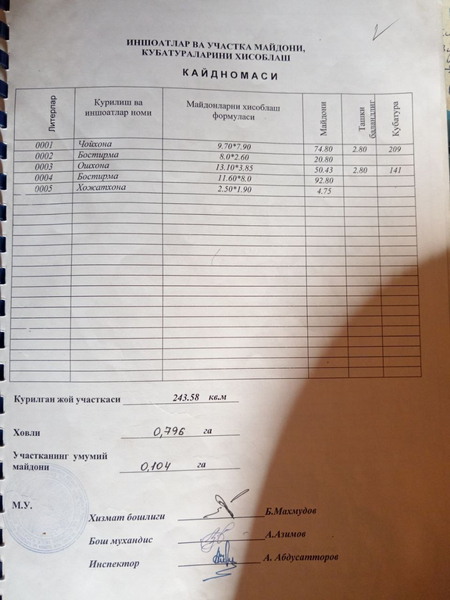 ИНШОАТЛАР ВА УЧАСТКА МАЙДОНИ,
КУБАТУРАЛАРИНИ ХИСОБЛАШ
КАЙДНОМАСИ
Литерлар Қурилиш ва иншоатлар номи Майдонларни хисоблаш формуласи Майдони Ташки баландлиг Кубатура
0001 Чойхона 9.70*7.90 74.80 2.80 209
0002 Бостирма 8.0*2.60 20.80
0003 Ошхона 13.10*3.85 50.43 2.80 141
0004 Бостирма 11.60*8.0 92.80
0005 Хожатхона 2.50*1.90 4.75
Курилган жой участкаси 243.58 кв.м
Ховли 0,796 га
Участканинг умумий
майдони 0,104 га
М.У.
Хизмат бошлиги Б.Махмудов
Бош мухандис А.Азимов
Инспектор А. Абдусатторов